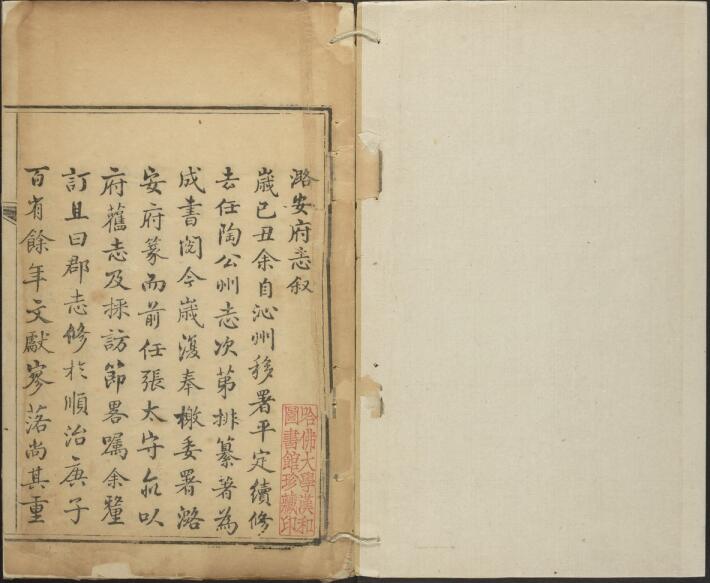 潞安府志叙
歳己丑余自沁州移署平定續修
去任陶公州志次第排纂著為
成書閲今歳復奉檄委署潞
安府篆而前任張太守亦以
府舊志及採訪節畧囑余釐
訂且曰郡志修於順治庚子
百有餘年文獻寥落尚其重
哈佛大學漢和
圖書館珍藏印